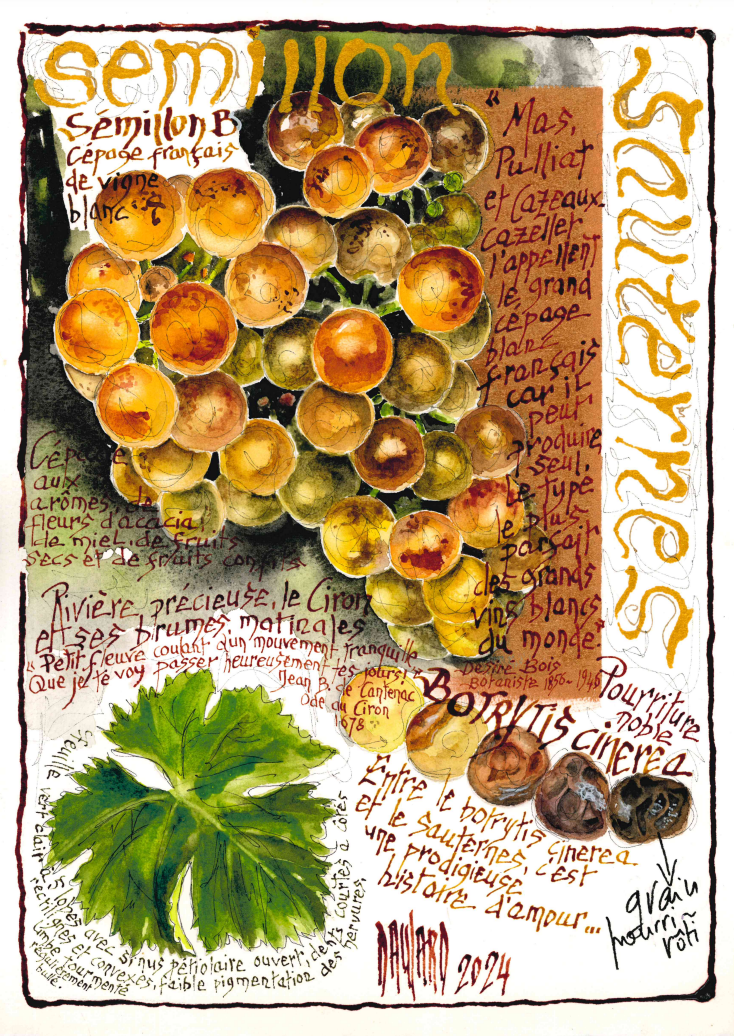 semillon
sauternes
Sémillon B
Cépage français
de vigne
blanc
"Mas,
Pulliat
et Cazeaux-
cazellet
l'appellent
le grand
cépage
blanc
français
car il
peut
produire,
seul,
le type
le plus
parfait
des grands
vins blancs
du monde"
Désiré Bois
Botaniste 1856-1946
Cépage
aux
arômes de
fleurs d'acacia,
de miel, de fruits
secs et de fruits confits.
Rivière précieuse, le Ciron
et ses brumes matinales
"Petit fleuve coulant d'un mouvement tranquille
Que je te voy passer heureusement tes jours!"
Jean B. de Cantenac
Ode au Ciron
1678
Botrytis cinerea
Pourriture
noble
Entre le botrytis cinerea
et le sauternes, c'est
une prodigieuse
histoire d'amour...
grain
pourri
rôti
feuille vert clair à 5 lobes avec sinus pétiolaire ouvert, dents courtes à côtés
rectilignes et convexes, faible pigmentation des nervures,
limbe tourmenté
régulièrement
bullé.
DAYLARD 2024